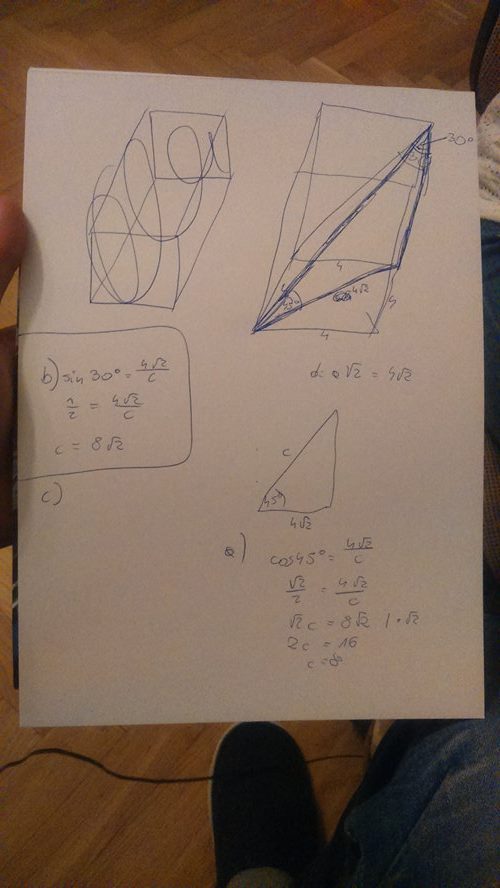 30°
4
4√2
4
4
45°
b) sin 30° = 4√2/c
1/2 = 4√2/c
c = 8√2
c)
d = a√2 = 4√2
c
45°
4√2
a)
cos 45° = 4√2/c
√2/2 = 4√2/c
√2c = 8√2 | · √2
2c = 16
c = 8